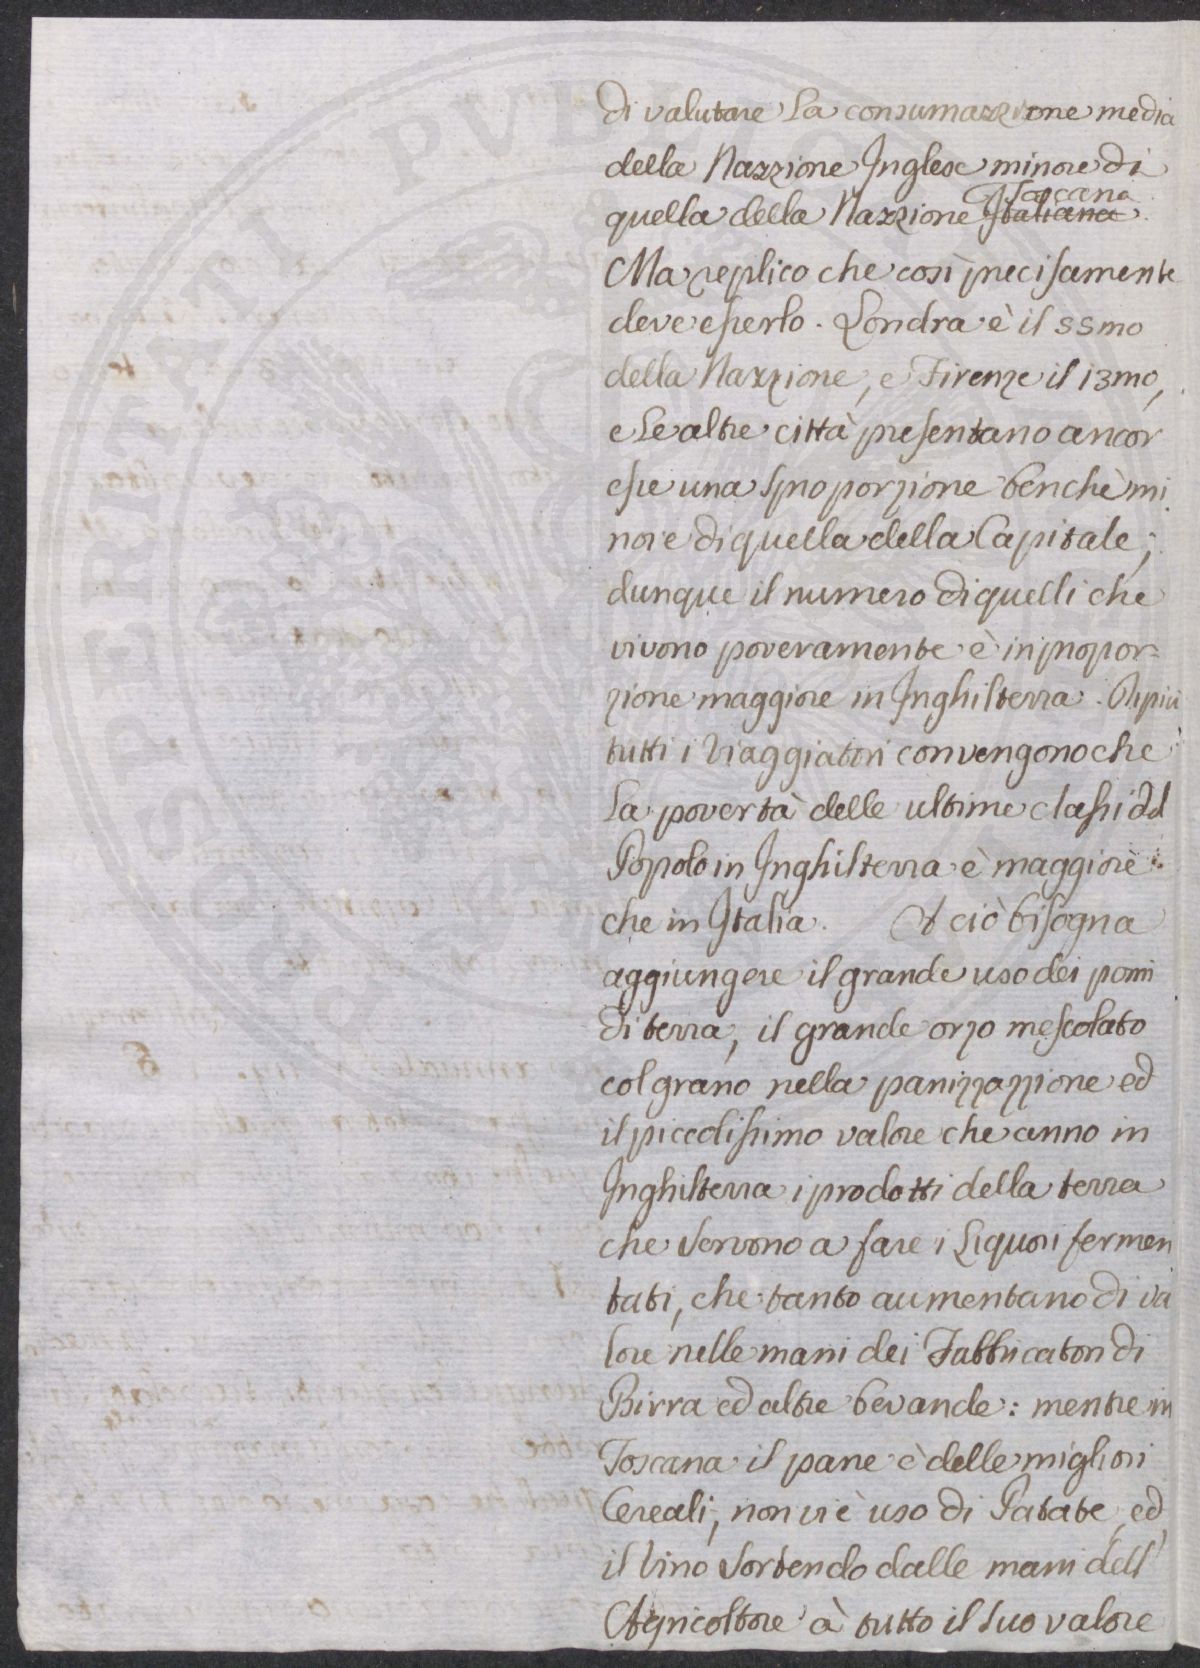 di valutare la consumazzione media
della Nazzione Inglese minore di
quella della Nazzione Italiana Toscana
Ma replico che così precisamente
deve esserlo. Londra è il 55mo
della Nazzione, e Firenze il 13mo,
e le altre città presentano ancor
esse una sproporzione benchè mi
nore di quella della Capitale;
dunque il numero di quelli che
vivono poveramente è in propor=
zione maggiore in Inghilterra. Di più
tutti i Viaggiatori convengono che
la povertà delle ultime classi del
Popolo in Inghilterra è maggiore
che in Italia. A ciò bisogna
aggiungere il grande uso dei pomi
di terra, il grande orzo mescolato
col grano nella panizzazzione ed
il piccolissimo valore che anno in
Inghilterra i prodotti della terra
che servono a fare i Liquori fermen
tati, che tanto aumentano di va
lore nelle mani dei Fabbricatori di
Birra ed altre bevande: mentre in
Toscana il pane è delle migliori
Cereali, non vi è uso di Patate, ed
il Vino sortendo dalle mani dell'
Agricoltore à tutto il suo valore
PERITATI PVBLICAE